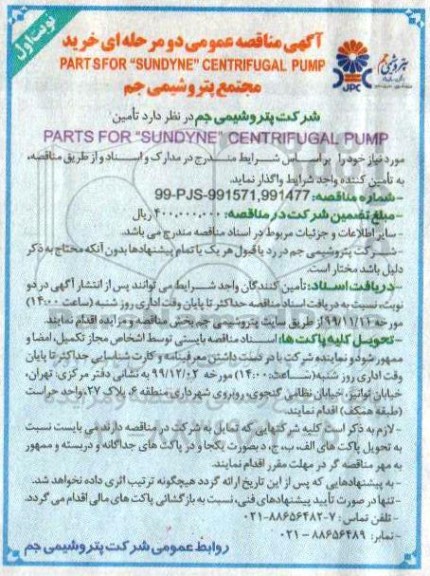 نوبت اول
آگهی مناقصه عمومی دو مرحله ای خرید
PARTS FOR "SUNDYNE" CENTRIFUGAL PUMP
مجتمع پتروشیمی جم
JPC
شرکت پتروشیمی جم در نظر دارد تأمین
PARTS FOR "SUNDYNE" CENTRIFUGAL PUMP
مورد نیاز خود را بر اساس شرایط مندرج در مدارک و اسناد و از طریق مناقصه،
به تأمین کننده واجد شرایط واگذار نماید.
-شماره مناقصه: 99-PJS-991571,991477
-مبلغ تضمین شرکت در مناقصه: ۴۰۰,۰۰۰,۰۰۰ ریال
- سایر اطلاعات و جزئیات مربوط در اسناد مناقصه مندرج می باشد.
- شرکت پتروشیمی جم در رد یا قبول هر یک یا تمام پیشنهادها بدون آنکه محتاج به ذکر
دلیل باشد مختار است.
-دریافت اسناد: تأمین کنندگان واجد شرایط می توانند پس از انتشار آگهی در دو
نوبت، نسبت به دریافت اسناد مناقصه حداکثر تا پایان وقت اداری روز شنبه (ساعت ۱۴:۰۰)
مورخه ۹۹/۱۱/۱۱ از طریق سایت پتروشیمی جم بخش مناقصه و مزایده اقدام نمایند.
-تحویل کلیه پاکت ها: اسناد مناقصه بایستی توسط اشخاص مجاز تکمیل، امضا و
ممهور شود و نماینده شرکت با در دست داشتن معرفینامه و کارت شناسایی حداکثر تا پایان
وقت اداری روز شنبه (ساعت: ۱۴:۰۰) مورخه ۹۹/۱۲/۰۲ به نشانی دفتر مرکزی: تهران،
خیابان توانیر، خیابان نظامی گنجوی، روبروی شهرداری منطقه ۶، پلاک ۲۷، واحد حراست
(طبقه همکف) اقدام نمایند.
- لازم به ذکر است کلیه شرکتهایی که تمایل به شرکت در مناقصه دارند می بایست نسبت
به تحویل پاکت های الف، ب، ج، د بصورت یکجا و در پاکت های جداگانه و دربسته و ممهور
به مهر مناقصه گر در مهلت مقرر اقدام نمایند.
-به پیشنهادهایی که پس از این تاریخ ارائه گردد هیچگونه ترتیب اثری داده نخواهد شد.
-تنها در صورت تأیید پیشنهادهای فنی، نسبت به بازگشائی پاکت های مالی اقدام می گردد.
- تلفن تماس: ۷-۸۸۶۵۶۴۸۲-۰۲۱
- نمابر: ۸۸۶۵۶۴۸۹ - ۰۲۱
روابط عمومی شرکت پتروشیمی جم